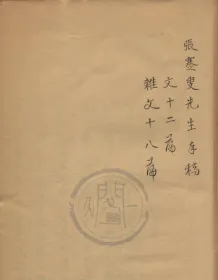 張蹇叟先生手稿
文十二篇
雜文十八篇